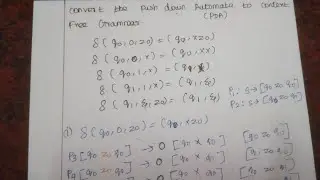 convert the Push down Automata to context
Free Grammar: (PDA)
δ(q0,0,z0) = (q0,xz0)
δ(q0,0,x) = (q0,xx)
δ(q0,1,x) =
δ(q1,1,x) = (q1,ε)
δ(q1,ε,x) = (q1,ε)
δ(q1,ε,z0) = (q1,ε)
P1: S→[q0 z0 q0]
P2: S→[q0 z0 q1]
1) δ(q0,0,z0) = (q0,xz0)
P3 [q0 z0 q0] → 0 [q0 x q0] [q0 z0 q0]
P4 [q0 z0 q0] → 0 [q0 x q1]